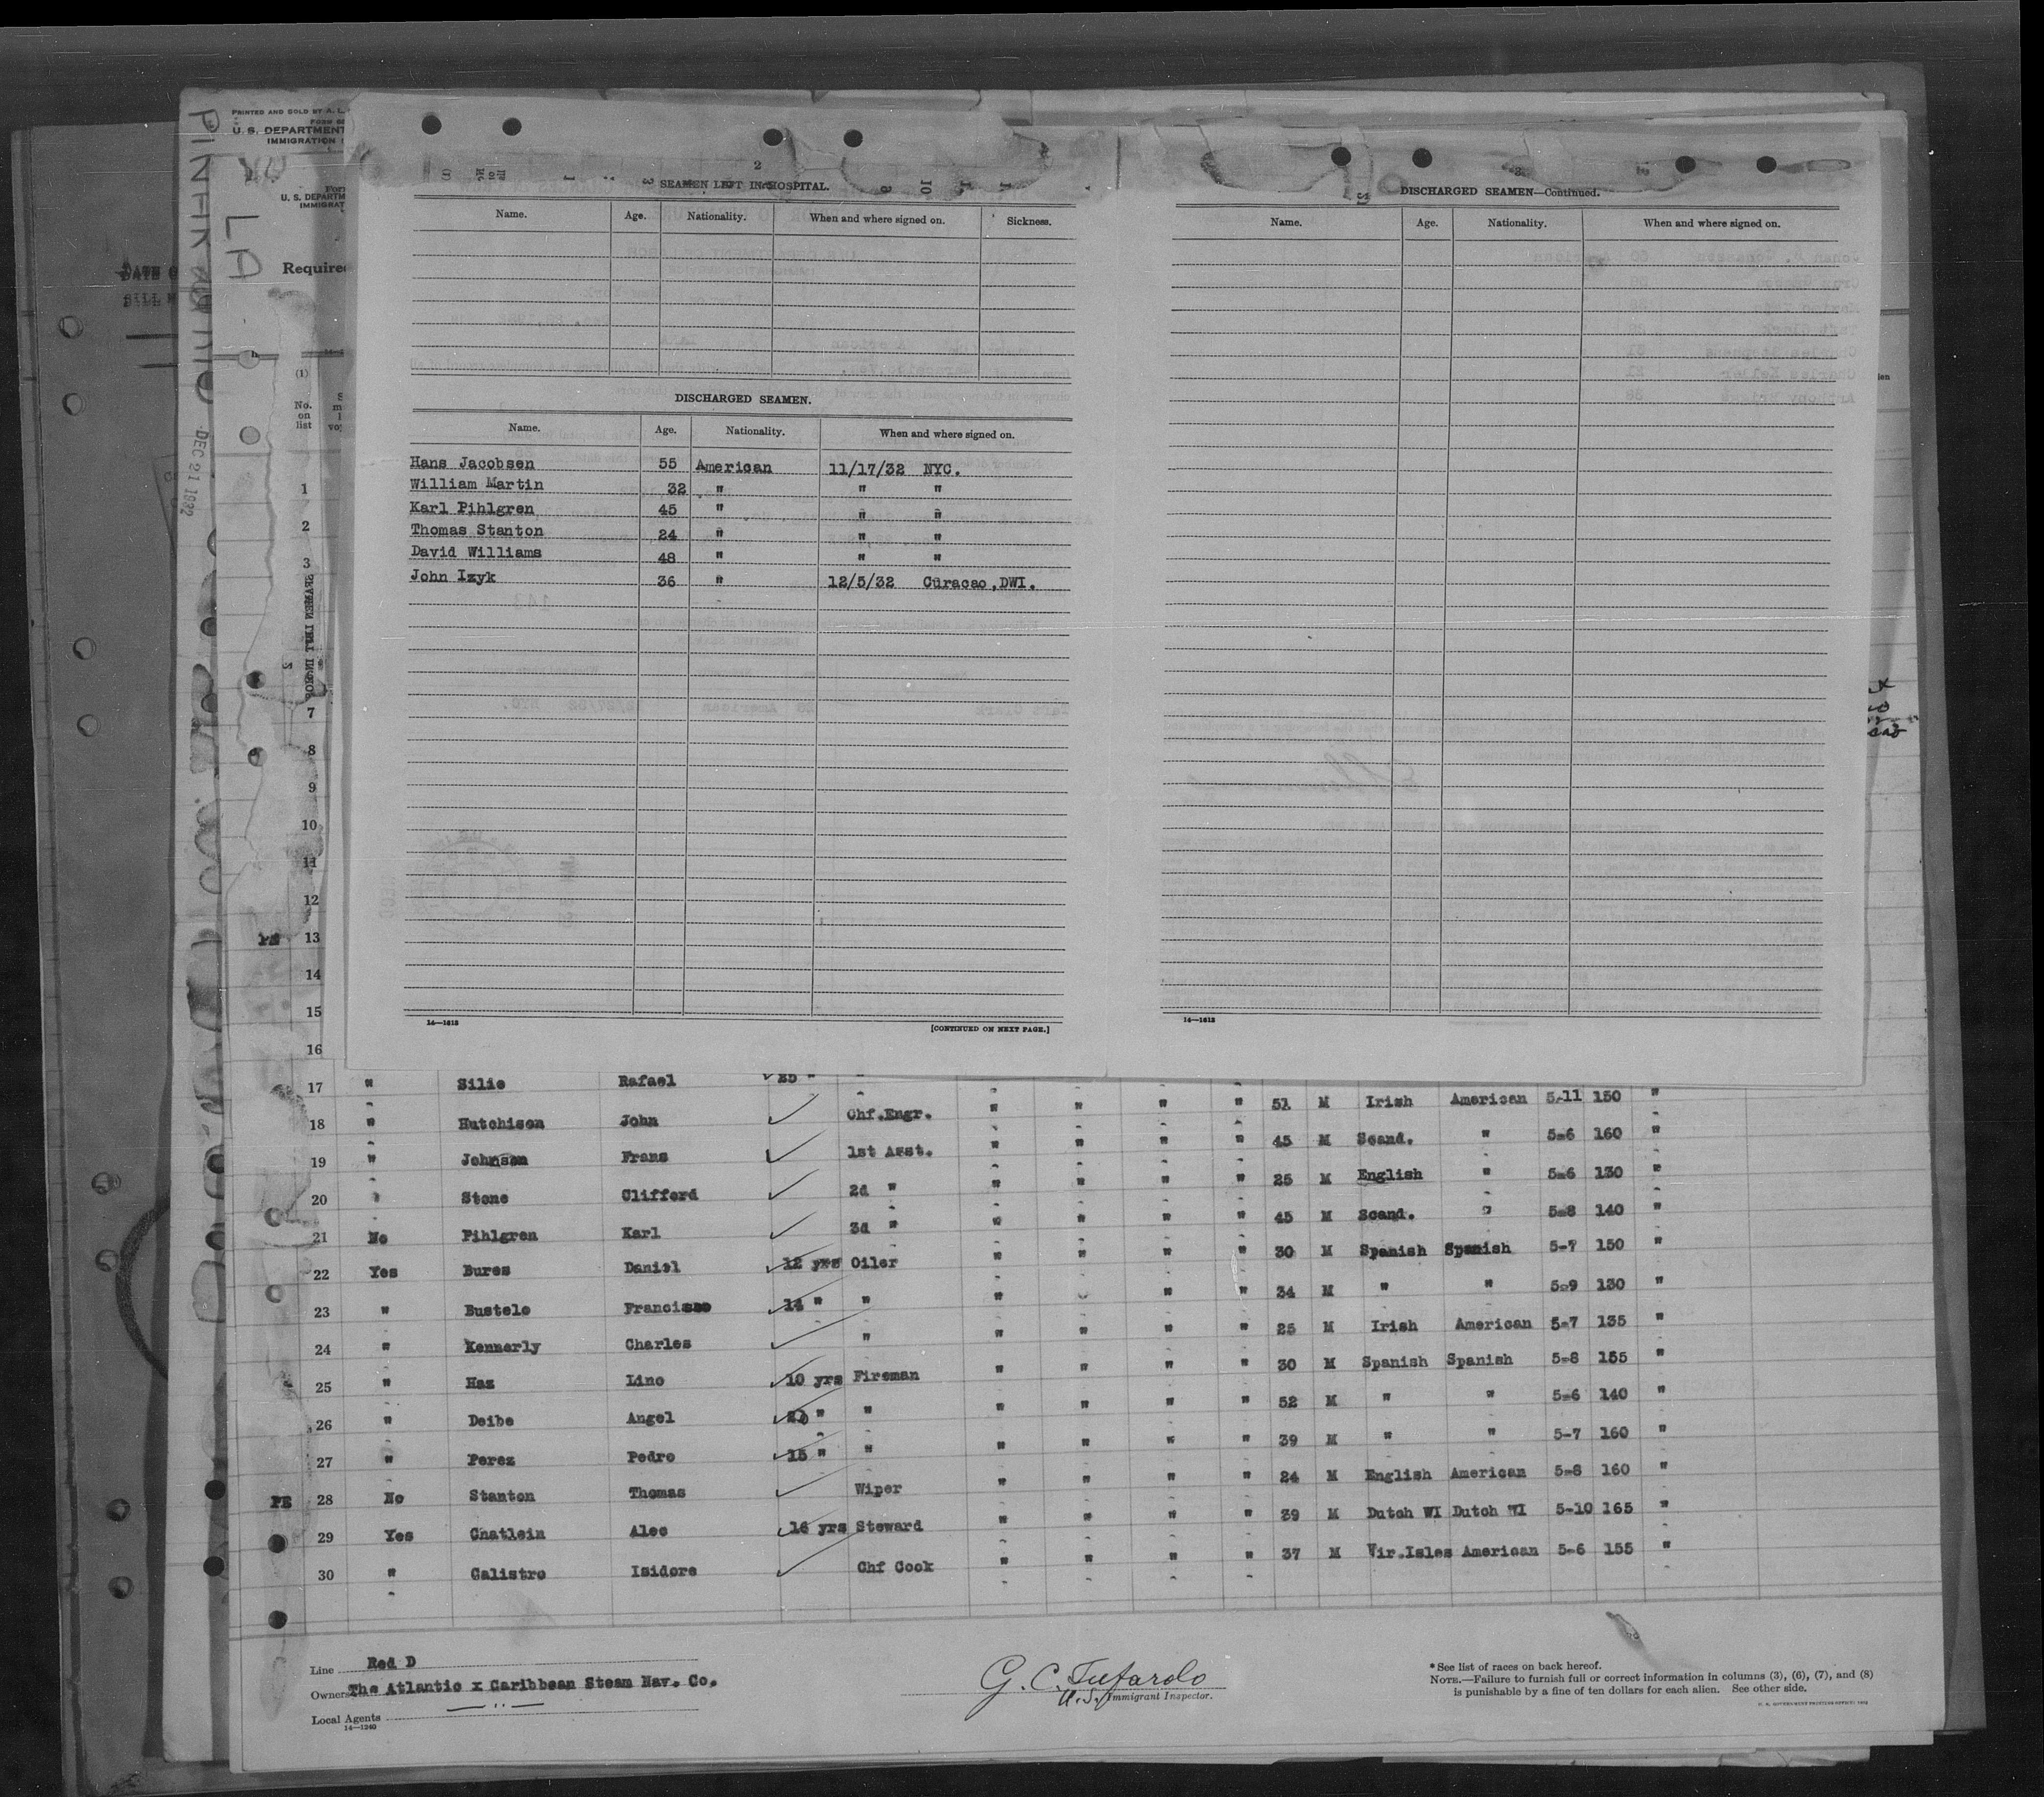 PRINTED AND SOLD BY A. L.
U. S. DEPARTMENT
IMMIGRATION
U. S. DEPARTM
IMMIGRAT
LA
Required
DEC 21 1932
2
SEAMEN LEFT IN HOSPITAL.
Name. Age. Nationality. When and where signed on. Sickness.
DISCHARGED SEAMEN.
Name. Age. Nationality. When and where signed on.
Hans Jacobsen 55 American 11/17/32 NYC.
William Martin 32 " " "
Karl Pihlgren 45 " " "
Thomas Stanton 24 " " "
David Williams 48 " " "
John Izyk 36 " 12/5/32 Curacao,DWI.
14—1613
[CONTINUED ON NEXT PAGE.]
3
DISCHARGED SEAMEN—Continued.
Name. Age. Nationality. When and where signed on.
14—1613
(1)
No. on list
1
2
3
7
8
9
10
11
12
PE 13
14
15
16
17 " Silie Rafael 25 "
18 " Hutchison John Chf.Engr. " " " " 51 M Irish American 5-11 150 "
19 " Johnson Frans 1st Asst. " " " " 45 M Scand. " 5-6 160 "
20 " Stone Clifford 2d " " " " " 25 M English " 5-6 130 "
21 No Pihlgren Karl 3d " " " " " 45 M Scand. " 5-8 140 "
22 Yes Bures Daniel 12 yrs Oiler " " " " 30 M Spanish Spanish 5-7 150 "
23 " Bustelo Francisco 14 " " " " " " 34 M " " 5-9 130 "
24 " Kennerly Charles " " " " " 25 M Irish American 5-7 135 "
25 " Haz Lino 10 yrs Fireman " " " " 30 M Spanish Spanish 5-8 155 "
26 " Deibe Angel " " " " " " 52 M " " 5-6 140 "
27 " Perez Pedro 15 " " " " " " 39 M " " 5-7 160 "
PE 28 No Stanton Thomas Wiper " " " " 24 M English American 5-8 160 "
29 Yes Chatlein Alec 16 yrs Steward " " " " 39 M Dutch WI Dutch WI 5-10 165 "
30 " Calistro Isidore Chf Cook " " " " 37 M Vir.Isles American 5-6 155 "
Line Red D
Owners The Atlantic x Caribbean Steam Nav. Co.
Local Agents — " —
14—1240
G. C. Tufarolo
U.S. Immigrant Inspector.
*See list of races on back hereof.
NOTE.—Failure to furnish full or correct information in columns (3), (6), (7), and (8)
is punishable by a fine of ten dollars for each alien. See other side.